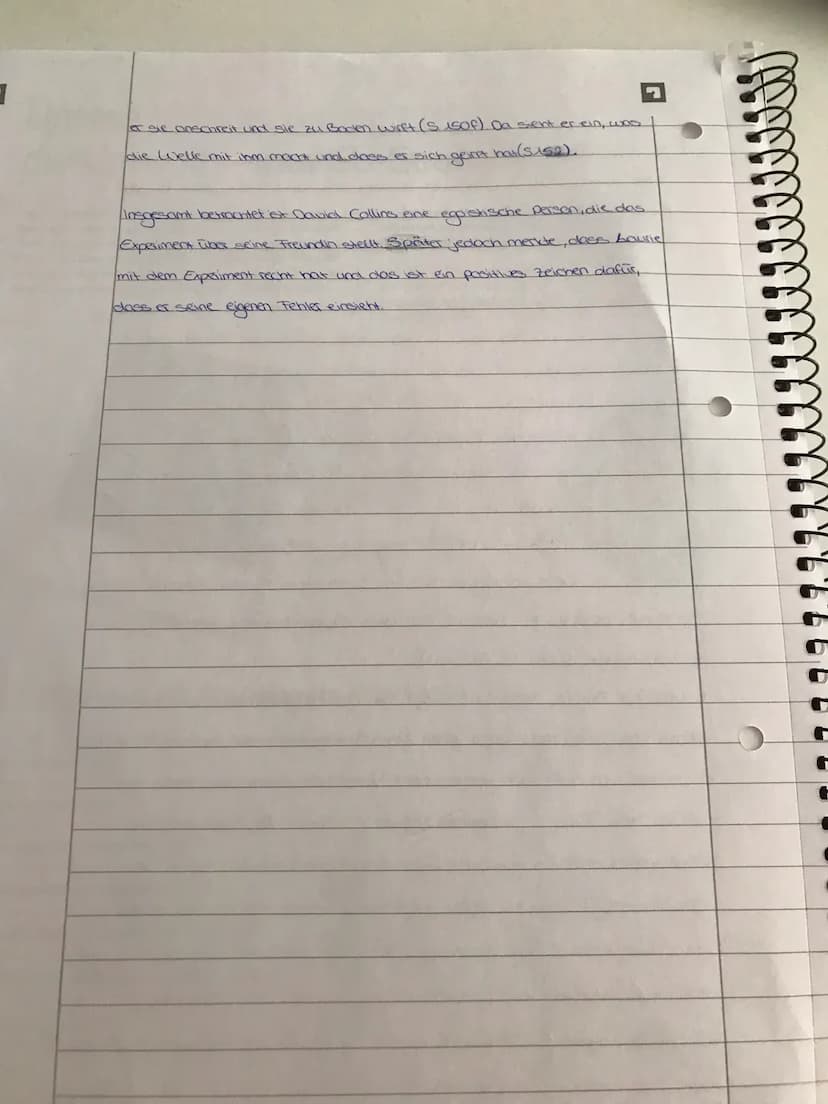 er sie anschreit und sie zu Boden wirft (S 150f) Da sieht er ein, was
die Welle mit ihm macht und dass er sich geirrt hat (S152).
Insgesamt betrachtet ist David Collins eine egoistische Person, die das
Experiment über seine Freundin stellt. Später jedoch merkte, dass Laurie
mit dem Experiment recht hat und das ist ein positives Zeichen dafür,
dass er seine eigenen Fehler einsieht.